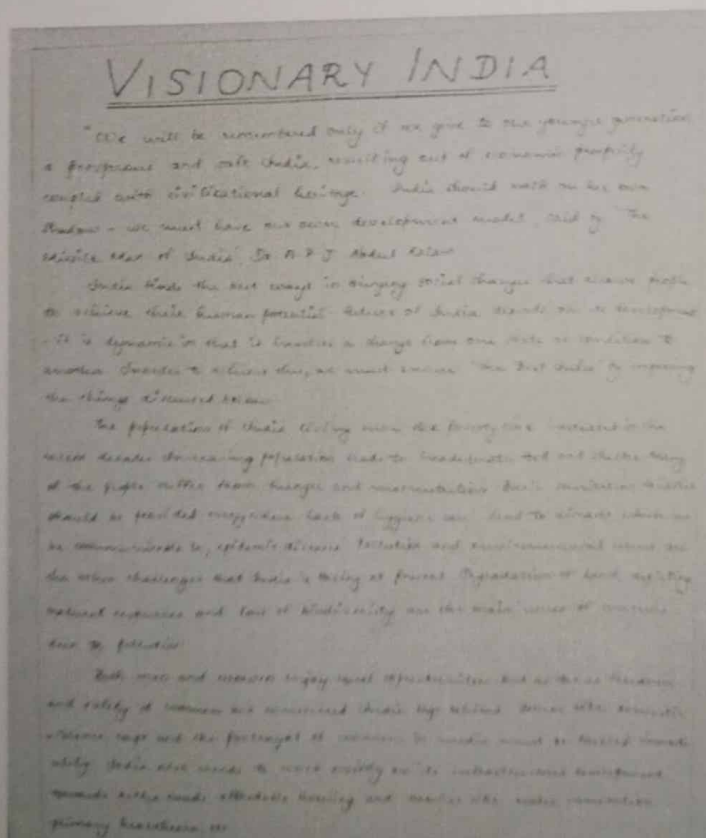 VISIONARY INDIA
"We will be remembered only if we give to our younger generation
a prosperous and safe India, resulting out of economic prosperity
coupled with civilizational heritage. India should walk on her own
shadow - we must have our own development model", said by "The
Missile Man of India", Dr A P J Abdul Kalam
India finds the best ways in bringing social changes that people
to achieve their human potential. Future of India depends on its development
- it is dynamic in that it involves a change from one state or condition to
another. Inorder to achieve this, we must "The Best India" by improving
the things discussed below.
The population of India living the poverty line in the
recent decades. Increasing population leads to food and shelter. Many
of the people suffer from hunger and malnutrition. Basic sanitation facilities
should be provided everywhere. Lack of hygiene can lead to which can
be communicable or epidemic disease. Pollution and environmental issues are
the other challenges that India is facing at present. Degradation of land, depleting
natural resources and loss of biodiversity are the main issues of
due to pollution.
Both men and women enjoy equal opportunities but as far as freedom
and safety of women are concerned India lags behind. Issues like domestic
violence, rape and the portrayal of women in media must be
India also needs to work on its infrastructure development
towards affordable housing and like water, sanitation,
primary healthcare etc